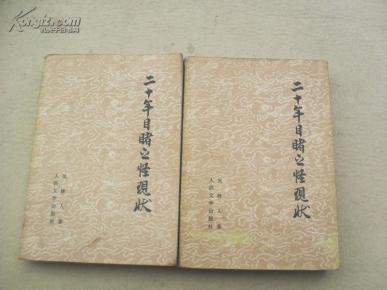 孔夫子旧书网
Kongfz.com
二十年目睹之怪现状
吴趼人著
人民文学出版社
二十年目睹之怪现状
吴趼人著
人民文学出版社